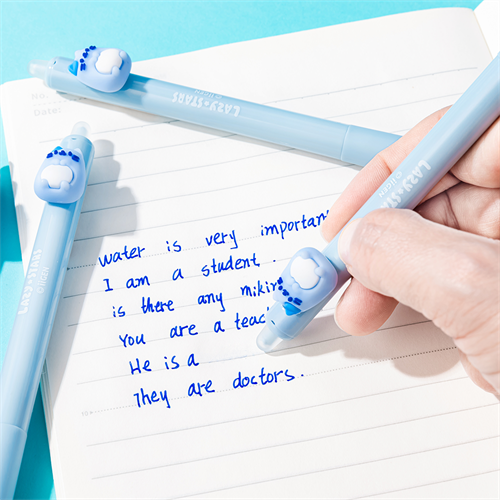 LAZY★STARS
QIHGN
No:
Date:
LAZY★STARS
LAZY★STARS
water is very important
I am a student.
is there any
You are a teac
He is a
They are doctors.